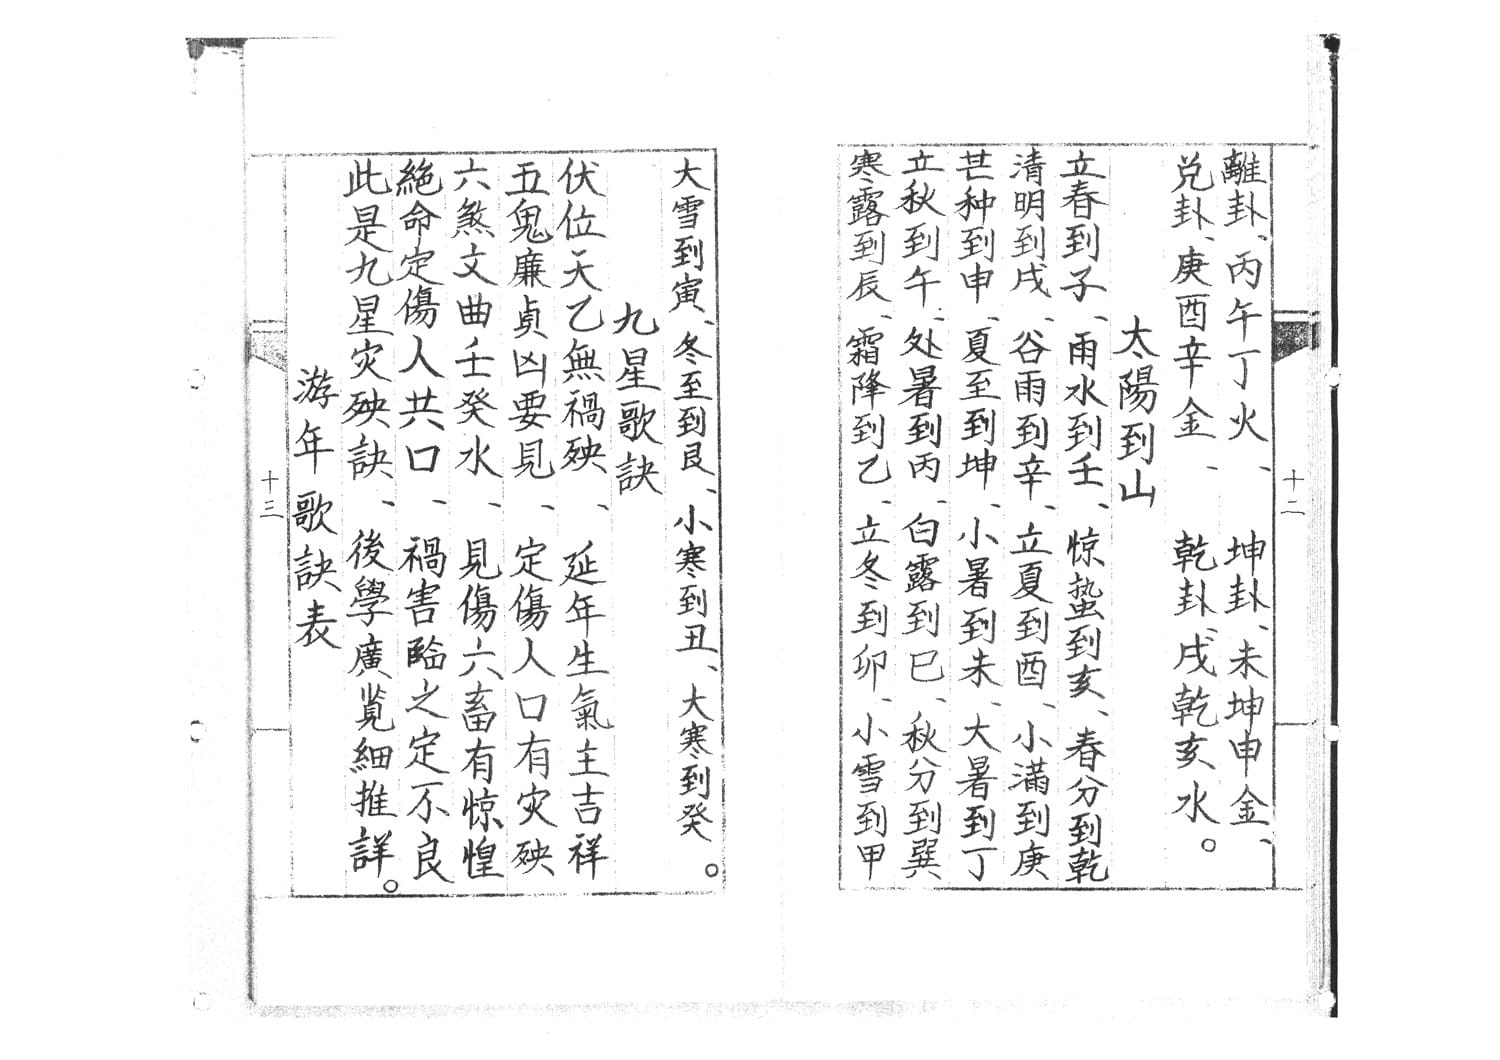 十二
離卦、丙午丁火、坤卦、未坤申金、
兑卦、庚酉辛金、乾卦、戌乾亥水。
太陽到山
立春到子、雨水到壬、惊蛰到亥、春分到乾
清明到戌、谷雨到辛、立夏到酉、小滿到庚
芒种到申、夏至到坤、小暑到未、大暑到丁
立秋到午、处暑到丙、白露到巳、秋分到巽
寒露到辰、霜降到乙、立冬到卯、小雪到甲
大雪到寅、冬至到艮、小寒到丑、大寒到癸。
九星歌訣
伏位天乙無禍殃、延年生氣主吉祥
五鬼廉貞凶要見、定傷人口有灾殃
六煞文曲壬癸水、見傷六畜有惊惶
絕命定傷人共口、禍害臨之定不良
此是九星灾殃訣、後學廣覧細推詳。
游年歌訣表
十三